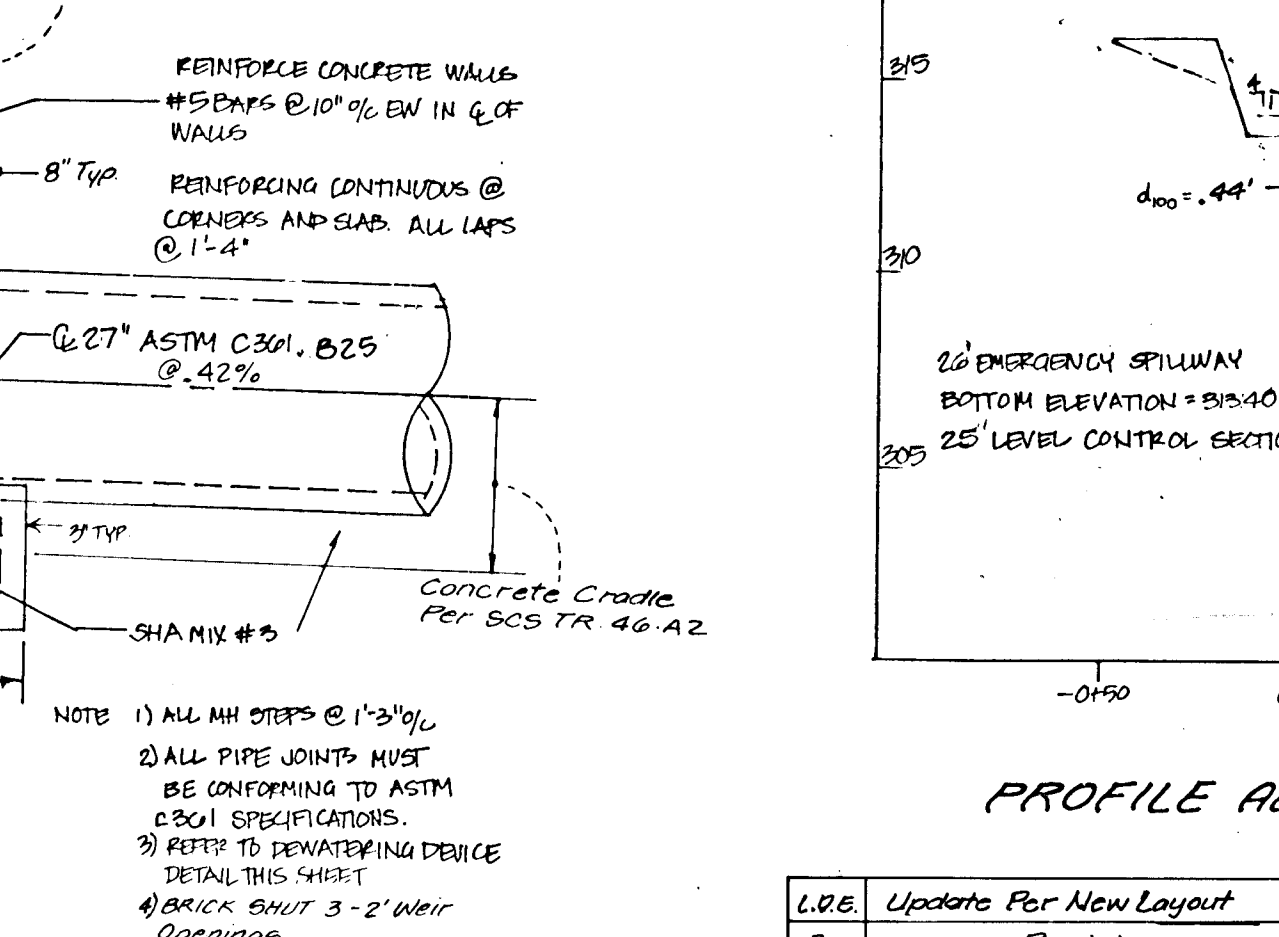 REINFORCE CONCRETE WALLS
#5 BARS @ 10" o/c EW IN ℄ OF
WALLS
8" TYP.
REINFORCING CONTINUOUS @
CORNERS AND SLAB. ALL LAPS
@ 1'-4"
℄ 27" ASTM C361. B25
@ .42%
3" TYP.
Concrete Cradle
Per SCS TR. 46-A2
SHA MIX #3
NOTE 1) ALL MH STEPS @ 1'-3" o/c
2) ALL PIPE JOINTS MUST
BE CONFORMING TO ASTM
C361 SPECIFICATIONS.
3) REFER TO DEWATERING DEVICE
DETAIL THIS SHEET
4) BRICK SHUT 3-2' Weir
Openings
315
4
1
d100 = .44'
310
26' EMERGENCY SPILLWAY
BOTTOM ELEVATION = 313.40
25' LEVEL CONTROL
305
-0+50
PROFILE
L.D.E. Update Per New Layout